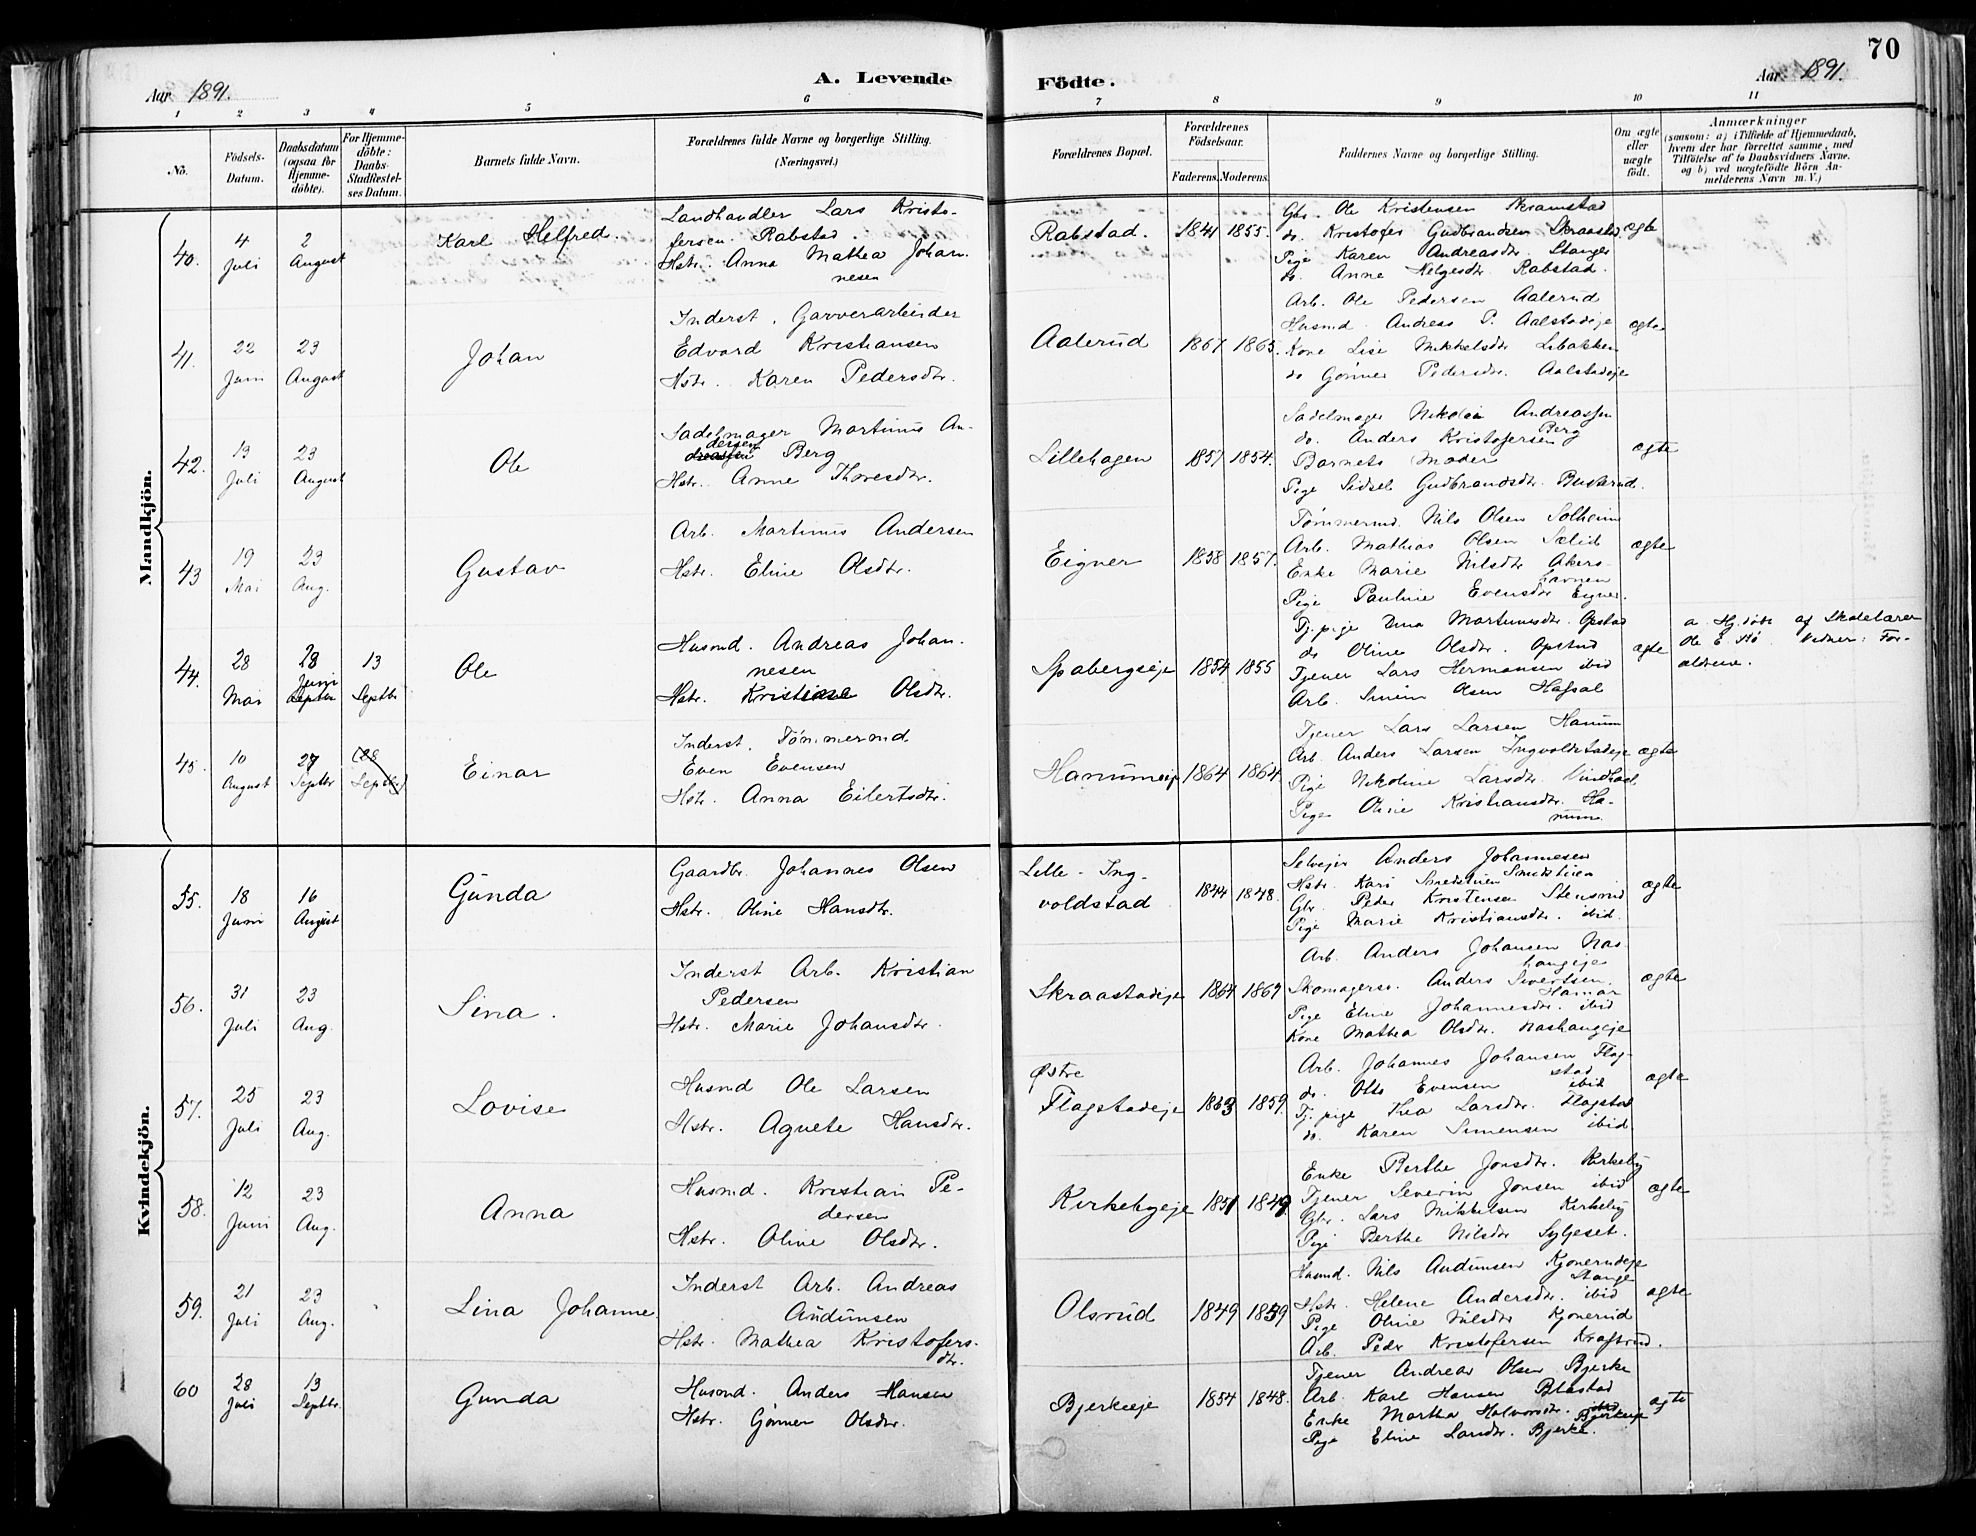 70
Aar 1891.
A. Levende
Födte.
Aar 1891.
1 2 3 4 5 6 7 8 9 10 11
No.
Födsels-
Datum.
Daabsdatum
(ogsaa for
Hjemme-
döbte).
For Hjemme-
döbte:
Daabs-
Stadfæstel-
ses Datum.
Barnets fulde Navn.
Forældrenes fulde Navne og borgerlige Stilling.
(Næringsvei.)
Forældrenes Bopæl.
Forældrenes
Födselsaar.
Faderens. Moderens.
Faddernes Navne og borgerlige Stilling.
Om ægte
eller
uægte
födt.
Anmærkninger
(saasom: a) i Tilfælde af Hjemmedaab,
hvem der har forrettet samme, med
Tilföielse af to Daabsvidners Navne.
og b) ved uægtefödte Börn An-
melderens Navn m. V.)
Mandkjön.
40.
4
Juli
2
August
Karl Helfred.
Landhandler Lars Kristo-
fersen Rabstad
Hstr. Anna Mathea Johan-
nesen
Rabstad.
1841
1855.
Gbr. Ole Kristensen Skramstad
do. Kristofer Gudbrandsen Skraastad.
Pige Karen Andreasdr. Stange
do. Anne Helgesdr. Rabstad.
ægte
41.
22
Juni
23
August
Johan
Inderst, Garverarbeider
Edvard Kristiansen
Hstr. Karen Pedersdtr.
Aalerud
1867
1865.
Arb. Ole Pedersen Aalerud
Husmd. Andreas P. Aalstadeje
Kone Lise Mikkelsdtr Libakken
do Gunner Pedersdtr. Aalstadeje
ægte
42.
13
Juli
23
August
Ole
Sadelmager Martinus An-
dersen
dreassen Berg
Hstr. Anne Thoresdtr.
Lillehagen
1857
1854.
Sadelmager Nikolai Andreassen
Berg
do. Anders Kristofersen
Barnets Moder
Pige Sidsel Gudbrandsdtr. Buskerud.
ægte
43
19
Mai
23
Aug.
Gustav
Arb. Martinus Andersen
Hstr. Eline Olsdtr.
Eigner
1838
1857.
Tømmermd. Nils Olsen Solheim
Arb. Mathias Olsen Sælid
Enke Marie Nilsdtr Akers-
havnen
Pige Pauline Evensdtr Eigner.
ægte
44.
28
Mai
28
Juni
Septbr
13
Septbr
Ole
Husmd. Andreas Johan-
nesen
Hstr. Kristiane Olsdtr.
Spabergseje
1854
1855
Tj.pige Dina Martinusdtr. Opstad
do Oline Olsdtr. Opstad
Tjener Lars Hermansen ibid
Arb. Simen Olsen Hafsal
ægte
a. Hj.døbt af Skolelærer
Ole E. Stø. Vidner: For-
ældrene.
45.
10
August
27
Septbr
(28
Septbr)
Einar
Inderst, Tømmermd.
Even Evensen
Hstr. Anna Eilertsdtr.
Hanumeje
1864
1864.
Tjener Lars Larsen Hanum
Arb. Anders Larsen Ingvoldstadeje
Pige Nikoline Larsdtr.
Pige Oline Kristiansdtr. Ha-
num.
ægte
Kvindekjön.
55.
18
Juni
16
August
Gunda
Gaardbr. Johannes Olsen
Hstr. Oline Hansdtr.
Lille-Ing-
voldstad
1844
1848.
Selvejer Anders Johannesen
Smedstuen
Hstr. Kari Smedstuen
Gbr. Peder Kristensen Stensrud
Pige Marie Kristiansdtr. ibid.
ægte
56.
31
Juli
23
Aug.
Sina.
Inderst Arb. Kristian
Pedersen
Hstr. Marie Johansdtr.
Skraastadeje
1864
1869
Arb. Anders Johansen Nas-
hangeje
Skomagersv. Anders Sivertsen.
Hamar
Pige Eline Johannesdtr. ibid
Kone Mathea Olsdtr. Nashangeje
ægte
57.
25
Juli
23
Aug.
Lovise
Husmd Ole Larsen
Hstr. Agnete Hansdtr.
Østre
Flagstadeje
1863
1859.
Arb. Johannes Johansen Flag-
stad
do. Otto Evensen ibid
Tj.pige Thea Larsdtr. Flagstad
do. Karen Simensen ibid
ægte
58.
12
Juni
23
Aug.
Anna
Husmd. Kristian Pe-
dersen
Hstr. Oline Olsdtr.
Kirkebyeje
1851
1849
Enke Berthe Jonsdtr. Kirkeby
Tjener Severin Jonsen ibid
Gbr. Lars Mikkelsen Kirkeby
Pige Berthe Nilsdtr Syljeset.
ægte
59.
21
Juli
23
Aug.
Lina Johanne
Inderst Arb. Andreas
Audunsen
Hstr. Mathea Kristofers-
dtr.
Olsrud
1849
1859
Husmd. Nils Audunsen Kjonerudeje
Stange
Hstr. Helene Andersdtr. ibid
Pige Oline Nilsdtr Kjonerud
Arb. Peder Kristofersen Kraftrud.
ægte
60
28
Juli
13
Septbr.
Gunda
Husmd. Anders Hansen
Hstr. Gunner Olsdtr.
Bjerkeeje
1854
1848.
Tjener Andreas Olsen Bjerke
Arb. Karl Hansen Blæstad
Enke Martha Halvorsdtr. ibid Bjerkeeje
Pige Eline Larsdtr. Bjerke.
ægte